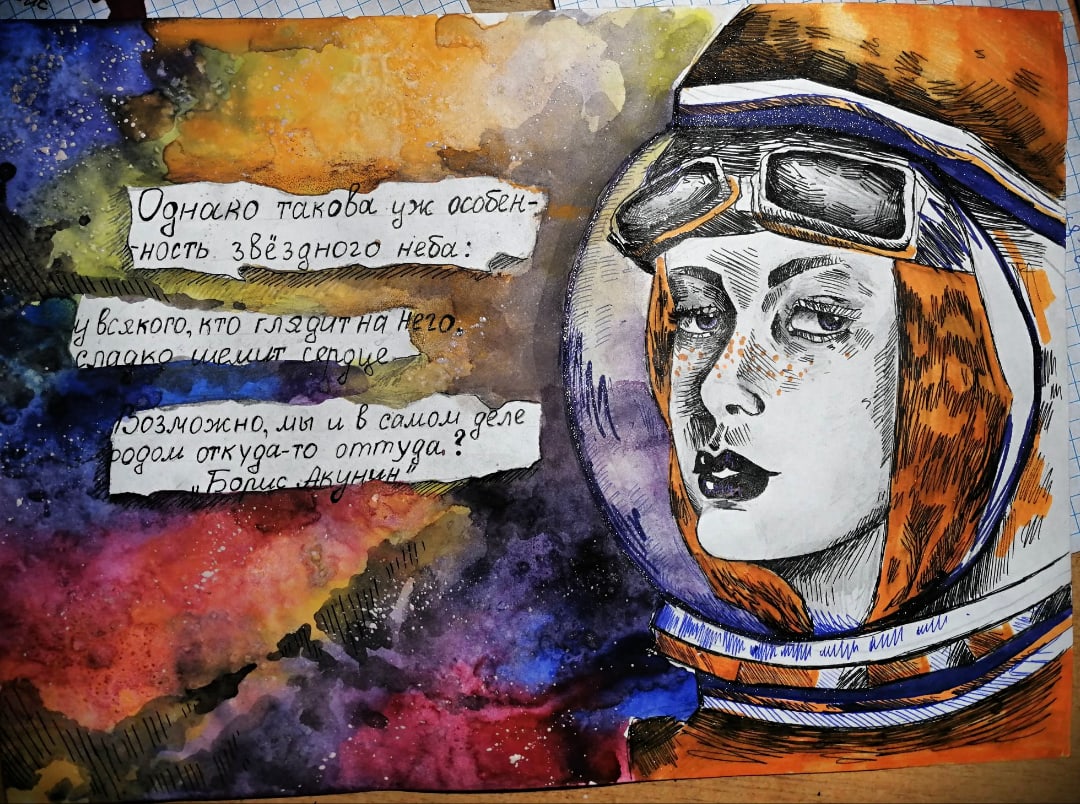 Однако такова уж особен-
-ность звёздного неба:
у всякого, кто глядит на него.
сладко щемит сердце
Возможно, мы и в самом деле
родом откуда-то оттуда.?
"Борис Акунин"